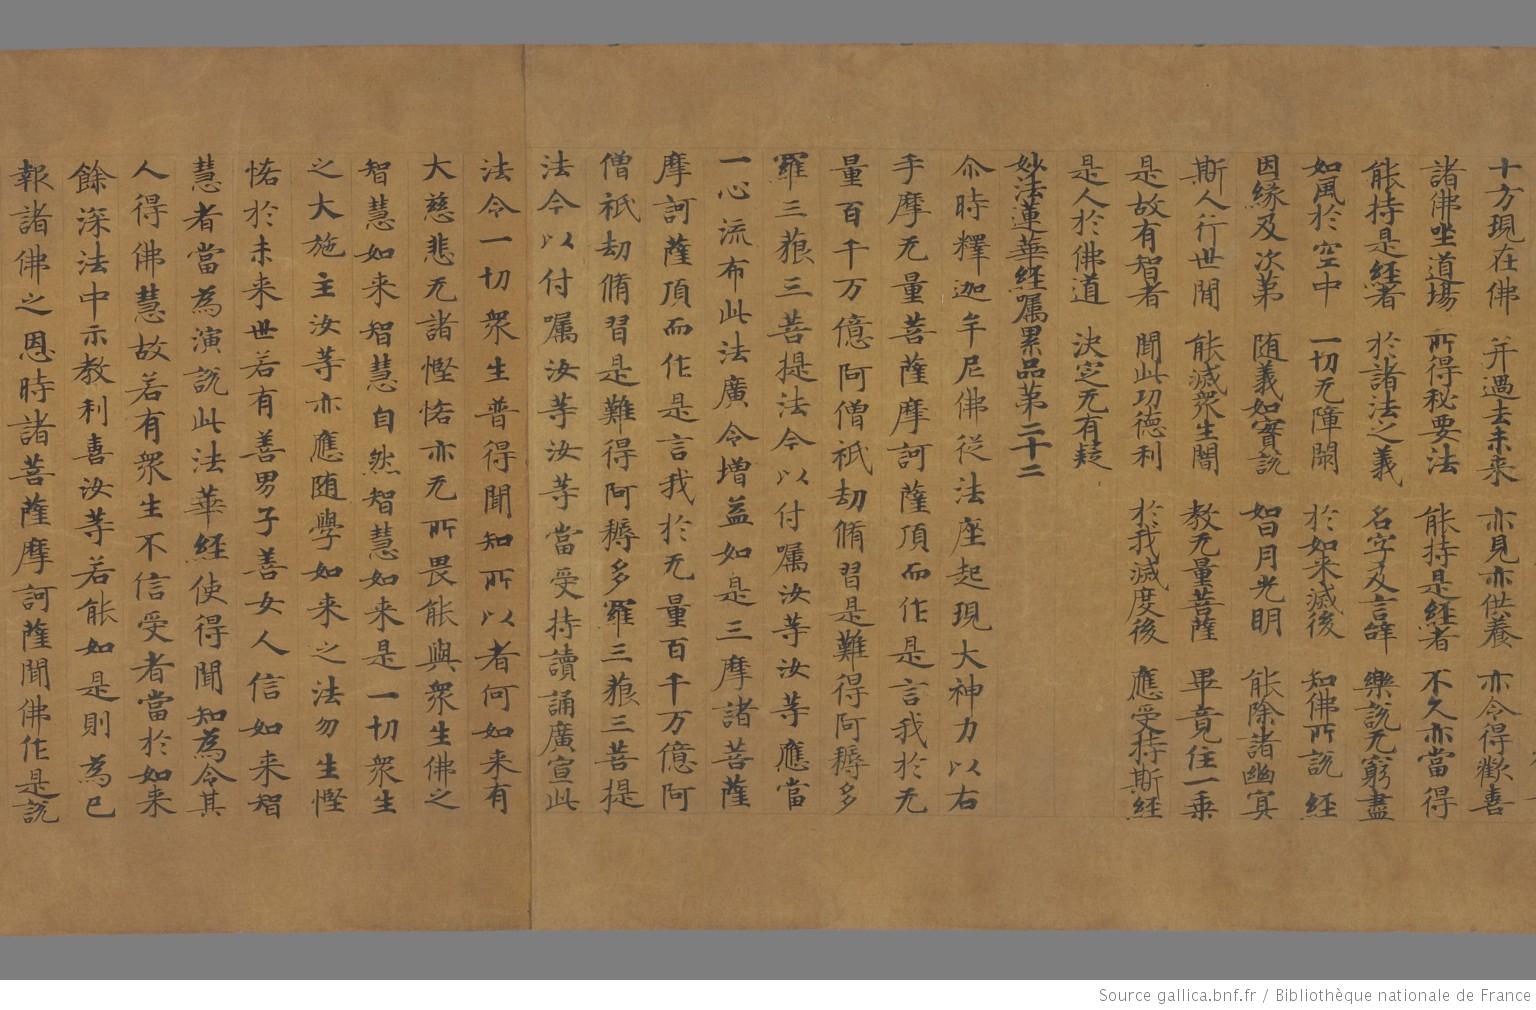 十方現在佛 并過去未来 亦見亦供養 亦令得歡喜
諸佛坐道場 所得秘要法 能持是經者 不久亦當得
能持是經者 於諸法之義 名字及言辞 樂說无窮盡
如風於空中 一切无障閡 於如来滅後 知佛所說經
因緣及次第 随義如實說 如日月光明 能除諸幽冥
斯人行世間 能滅衆生闇 教无量菩薩 畢竟住一乗
是故有智者 聞此功德利 於我滅度後 應受持斯經
是人於佛道 決定无有疑
妙法蓮華經嘱累品第二十二
尒時釋迦牟尼佛従法座起現大神力以右
手摩无量菩薩摩訶薩頂而作是言我於无
量百千万億阿僧祇劫脩習是難得阿耨多
羅三藐三菩提法今以付嘱汝等汝等應當
一心流布此法廣令增益如是三摩諸菩薩
摩訶薩頂而作是言我於无量百千万億阿
僧祇劫脩習是難得阿耨多羅三藐三菩提
法今以付嘱汝等汝等當受持讀誦廣宣此
法令一切衆生普得聞知所以者何如来有
大慈悲无諸慳悋亦无所畏能與衆生佛之
智慧如来智慧自然智慧如来是一切衆生
之大施主汝等亦應随學如来之法勿生慳
悋於未来世若有善男子善女人信如来智
慧者當為演說此法華經使得聞知為令其
人得佛慧故若有衆生不信受者當於如来
餘深法中示教利喜汝等若能如是則為已
報諸佛之恩時諸菩薩摩訶薩聞佛作是說
Source gallica.bnf.fr / Bibliothèque nationale de France